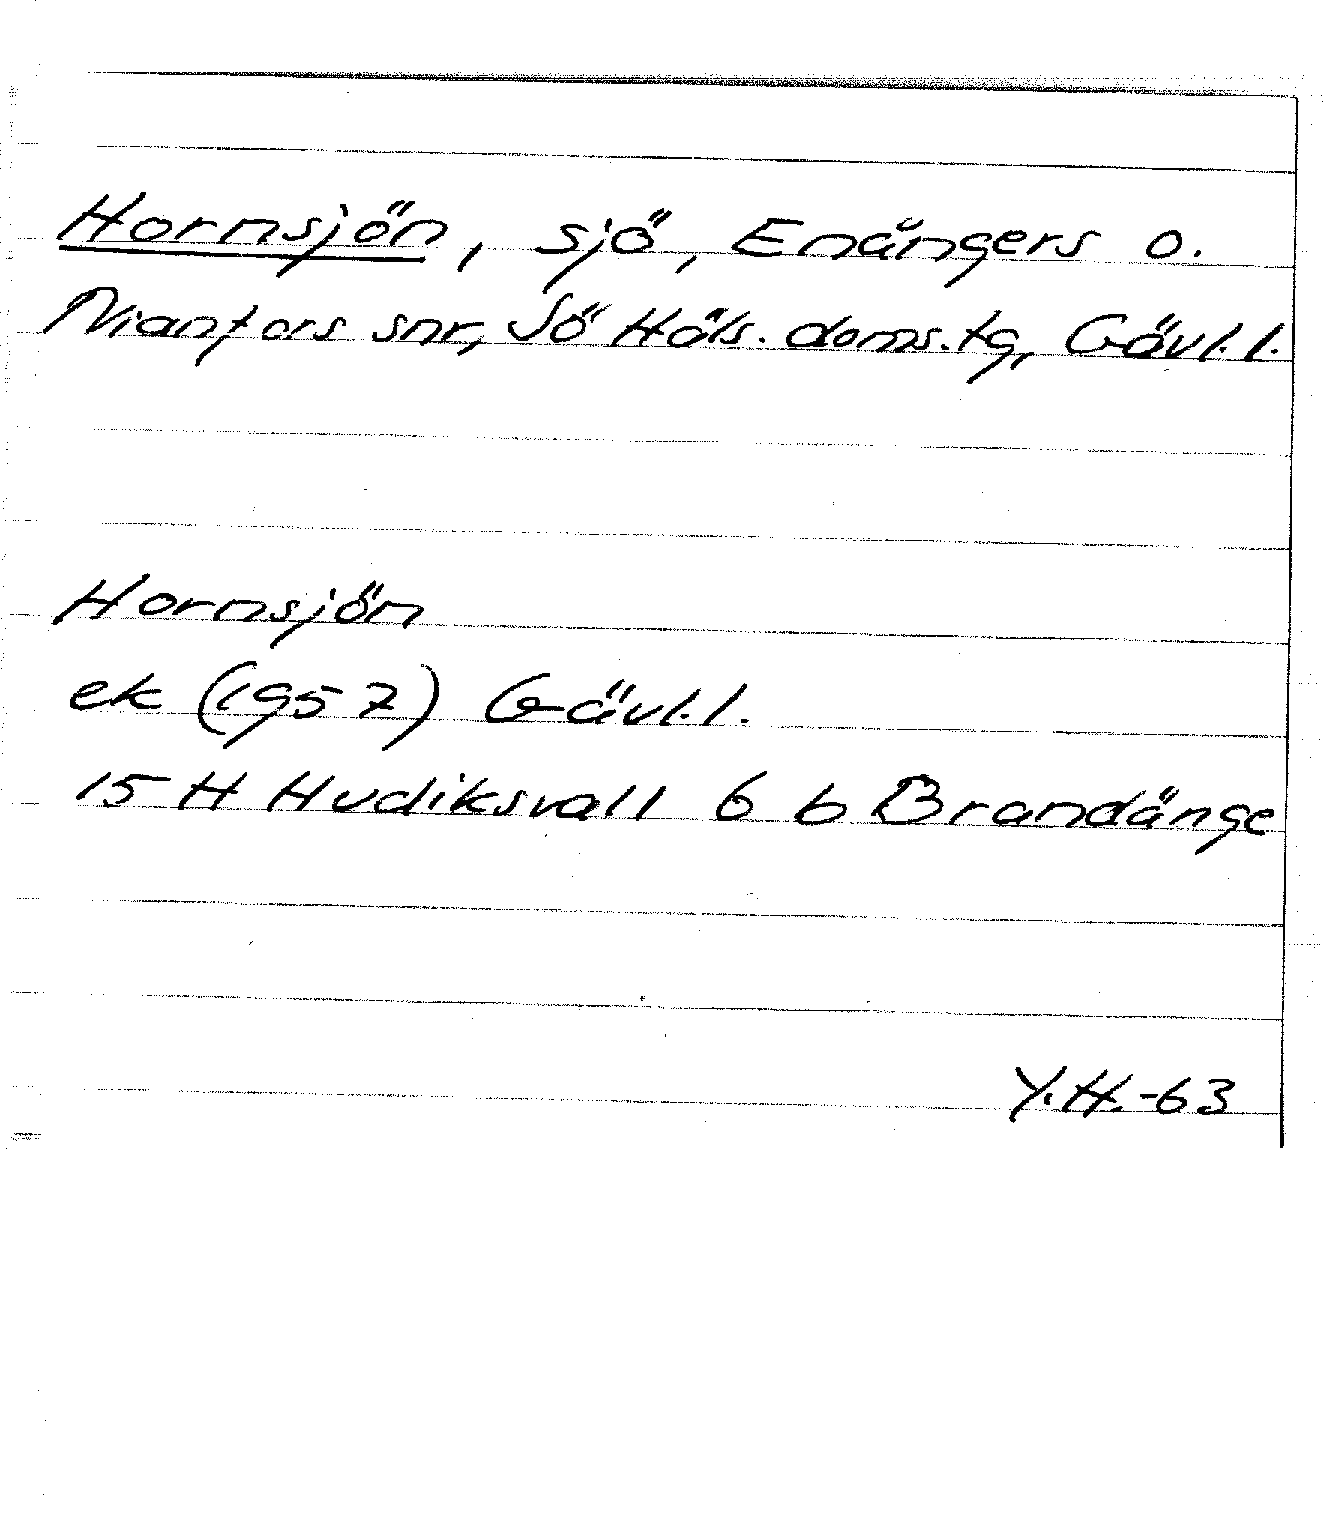 Hornsjön, sjö, Enångers o.
Nianfors snr, Sö Häls. doms.tg, Gävl.l.
Hornsjön
ek (1957) Gävl.l.
15 H Hudiksvall 6 b Brandänge
Y.H.-63